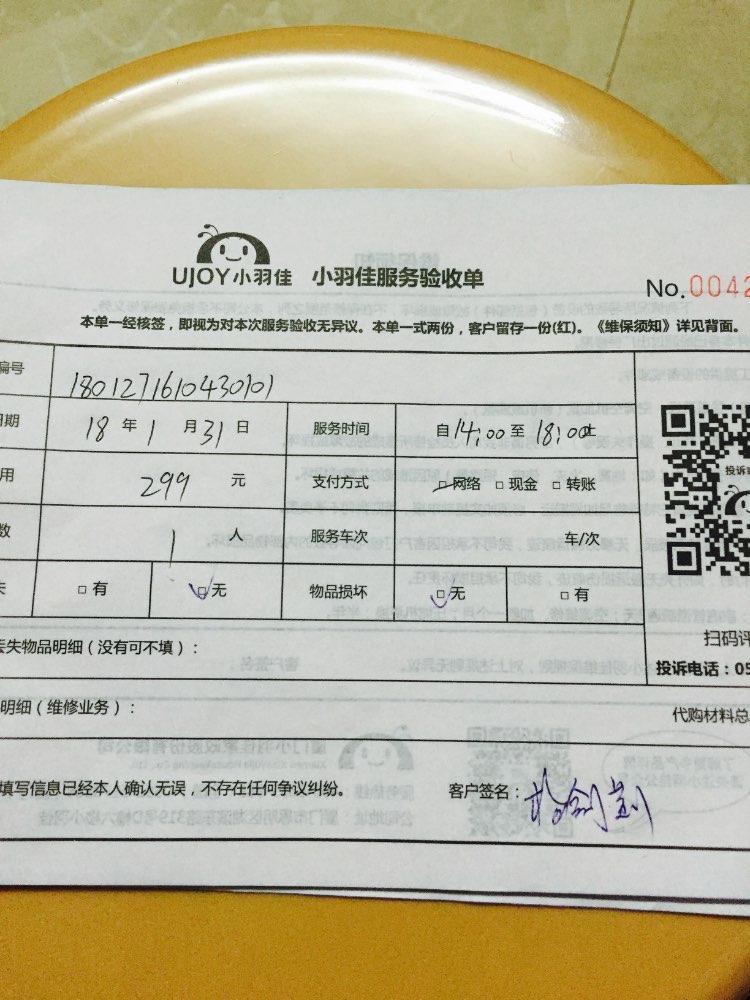 UJOY小羽佳 小羽佳服务验收单
No.0042
本单一经核签，即视为对本次服务验收无异议。本单一式两份，客户留存一份(红)。《维保须知》详见背面。
编号 1801271610430101
日期 18 年 1 月 31 日 服务时间 自 14:00 至 18:00 止
用 299 元 支付方式 网络 □ 现金 □ 转账
数 1 人 服务车次 车/次
失 □ 有 □ 无 物品损坏 □ 无 □ 有
投诉
丢失物品明细（没有可不填）：
扫码评
投诉电话：05
明细（维修业务）：
代购材料总
填写信息已经本人确认无误，不存在任何争议纠纷。
客户签名：